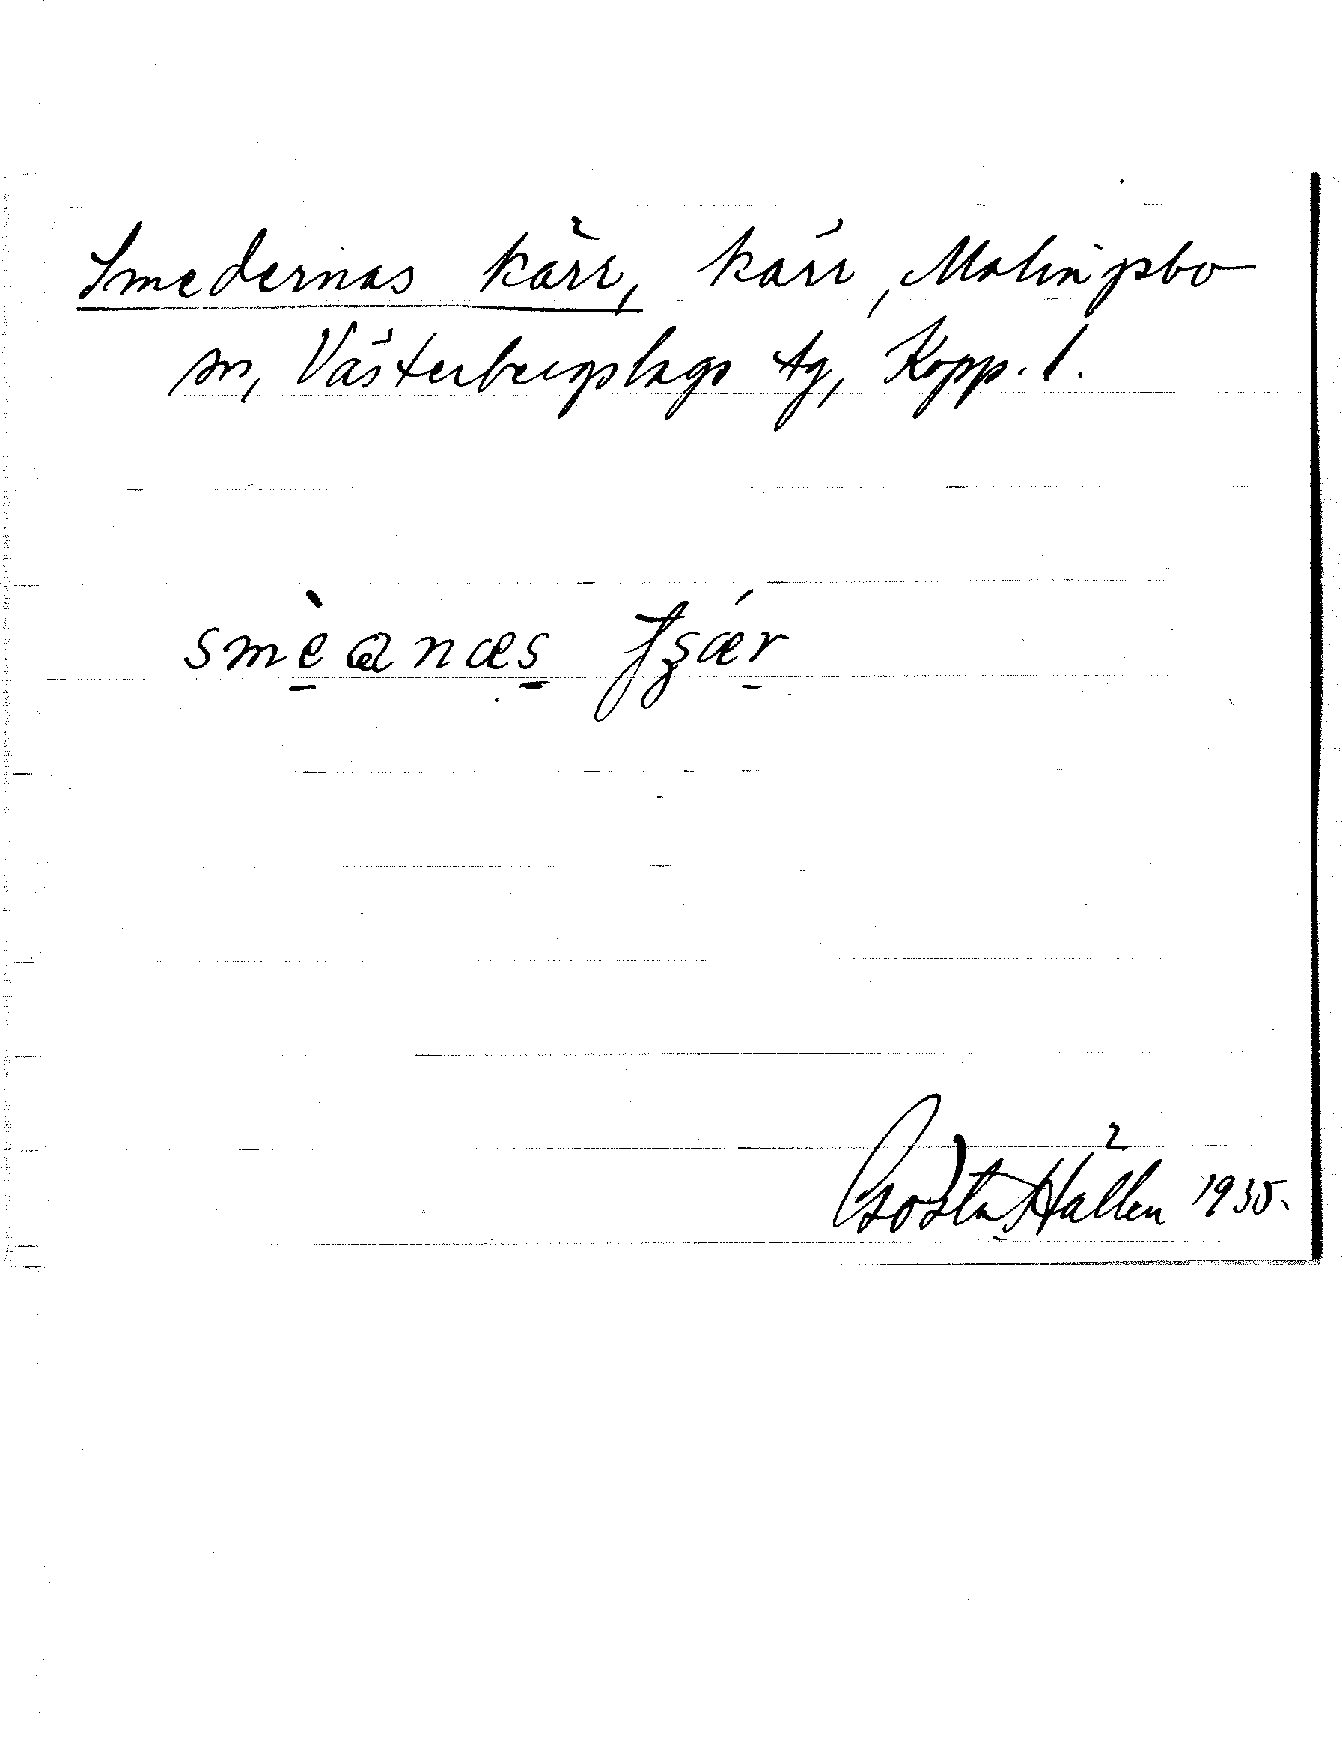 Smedernas kärr, kärr, Malingsbo
sn, Västerbergslags tg, Kopp. l.
smèanæs
Gösta Hallén 1935.